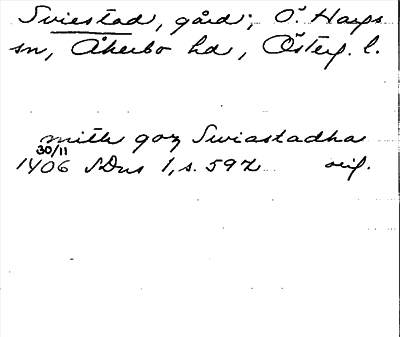 Sviestad, gård; Ö. Harps
sn, Åkerbo hd, Österg. l.
mith goz Swiastadha
30/11
1406 SDns 1, s. 592 orig.